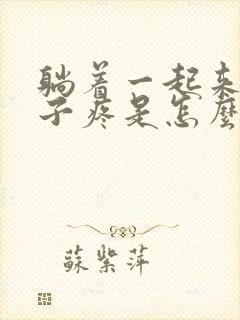 躺着一起来
子疼是怎麼
蘇紫萍